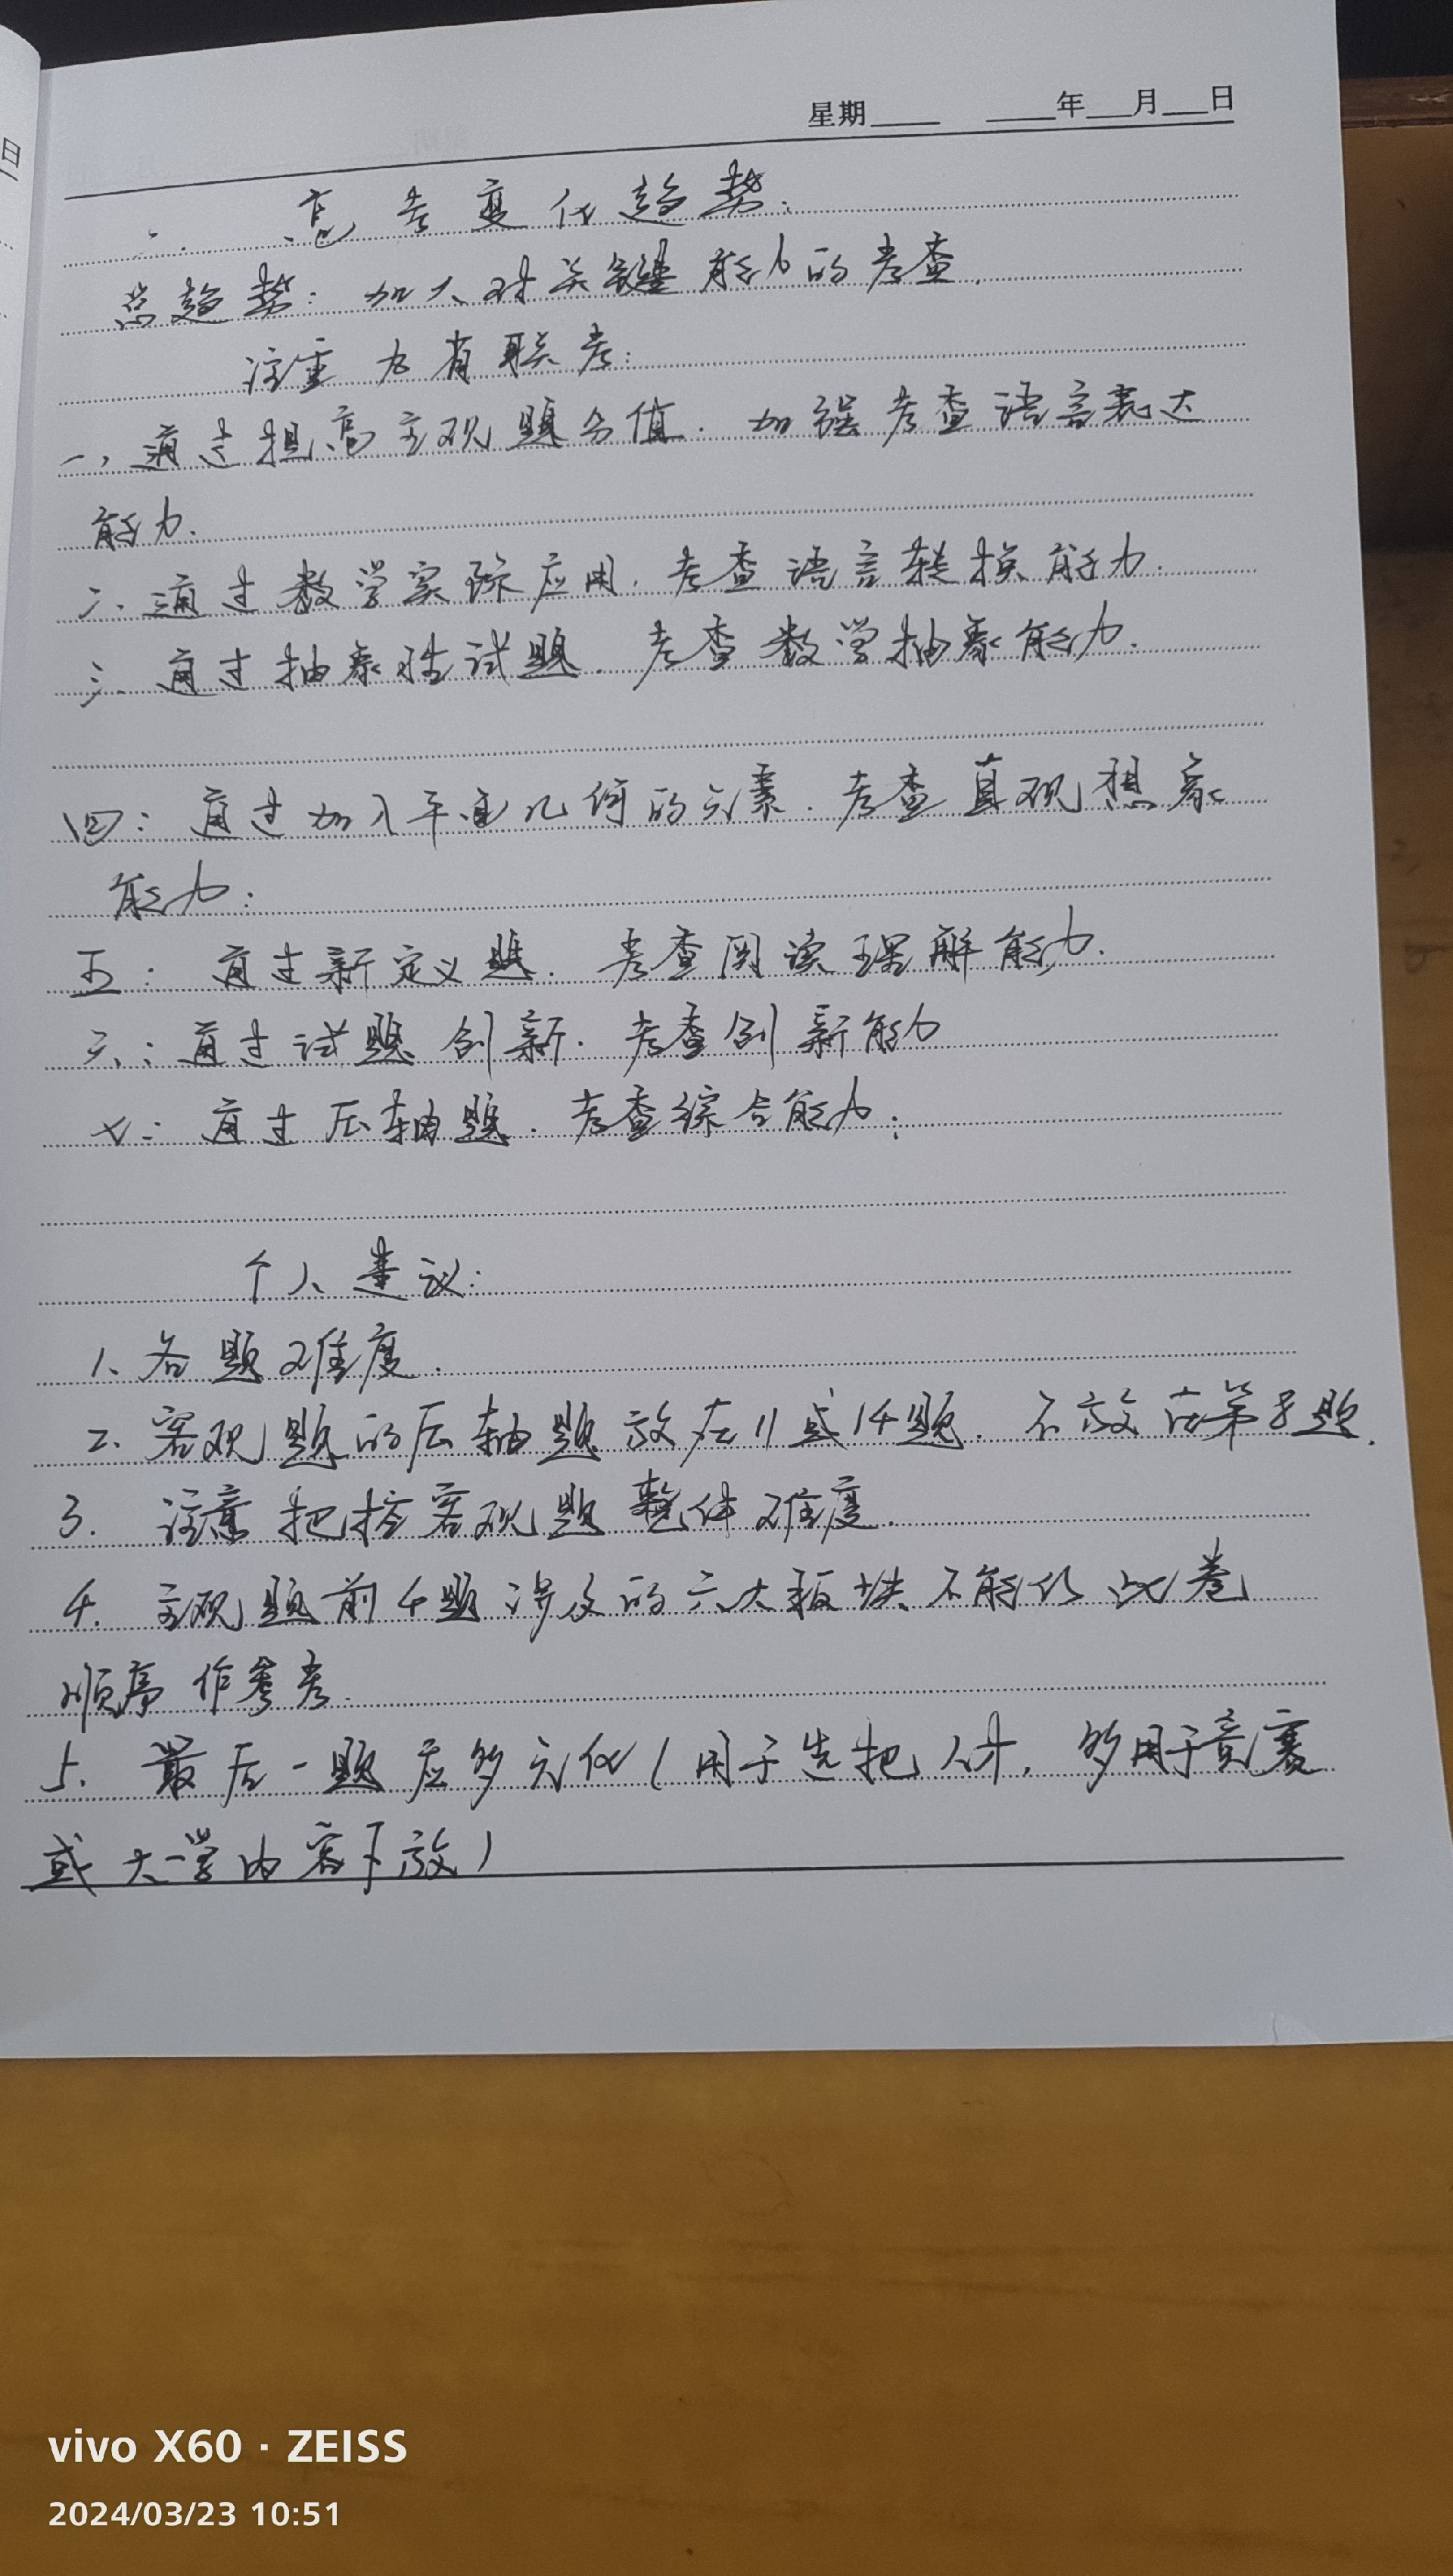 日
星期____ ____年___月___日
二. 高考变化趋势:
总趋势: 加大对关键能力的考查.
注重 九省联考:
一, 通过提高主观题分值. 加强考查语言表达
能力.
二. 通过数学实际应用. 考查语言转换能力.
三. 通过抽象性试题. 考查数学抽象能力.
四: 通过加入平面几何的元素. 考查直观想象
能力:
五: 通过新定义题. 考查阅读理解能力.
六: 通过试题创新. 考查创新能力
七: 通过压轴题. 考查综合能力:
个人建议:
1. 各题难度.
2. 客观题的压轴题放在11或14题. 不放在第8题.
3. 注意把控客观题整体难度.
4. 主观题前4题涉及的六大板块不能以此卷
顺序作参考.
5. 最后一题应多元化(用于选把人才, 多用于竞赛
或大学内容下放)
vivo X60 · ZEISS
2024/03/23 10:51